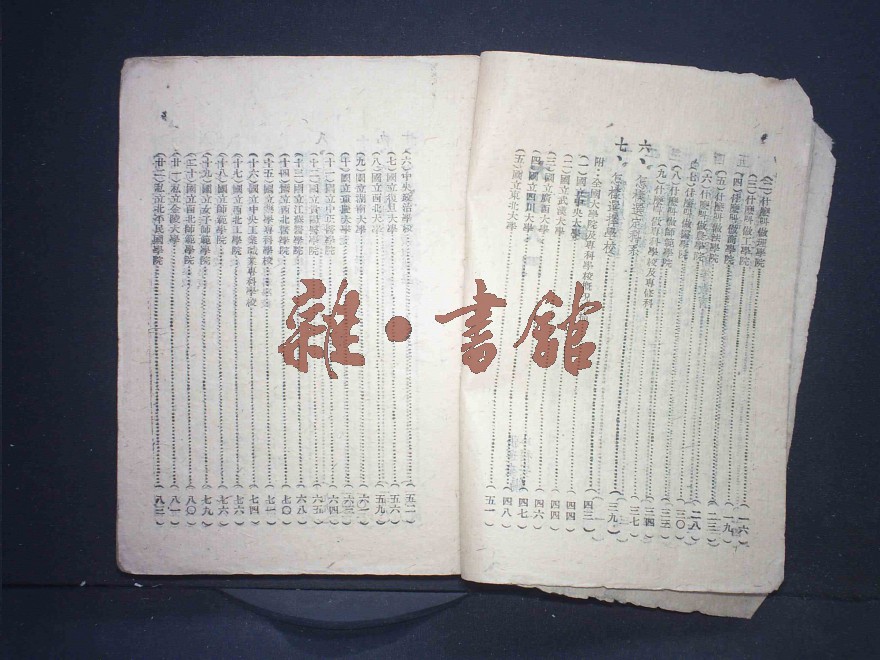 (二)什麼叫做理學院……(一六)
(三)什麼叫做工學院……(一九)
(四)什麼叫做商學院
(五)什麼叫做法學院……(二三)
(六)什麼叫做農學院……(二八)
(七)什麼叫做醫學院……(三〇)
(八)什麼叫做師範學院……(三五)
(九)什麼叫做專科學校及專修科……(三四)
六、怎樣選定院系……(三七)
七、怎樣選擇學校……(三九)
附:全國大學院及專科學校概
(一)國立中央大學……(四三)
(二)國立武漢大學……(四四)
(三)國立廣西大學……(四四)
(四)國立四川大學……(四六)
(五)國立東北大學……(五一)
(六)中央政治學校……(五二)
(七)國立復旦大學……(五六)
(八)國立西北大學……(五九)
(九)國立湖南大學……(六一)
(十)國立重慶大學……(六三)
(十一)國立中正醫學院……(六四)
(十二)國立貴陽醫學院……(六五)
(十三)國立江蘇醫學院……(六八)
(十四)國立西北醫學院……(七〇)
(十五)國立藥學專科學校……(七一)
(十六)國立中央工業職業專科學校……(七四)
(十七)國立西北工學院……(七六)
(十八)國立師範學院……(七六)
(十九)國立女子師範學院……(七九)
(二十)國立西北師範學院……(八〇)
(廿一)私立金陵大學……(八一)
(廿二)私立北平民國學院……(八三)
雜·書館